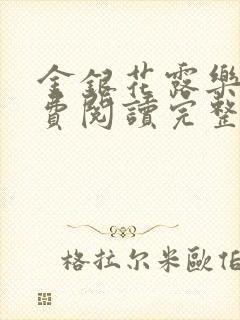 金銀花露樂
費閱讀完整
格拉尔米歐伯